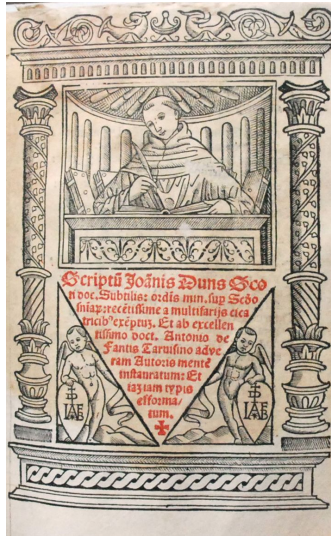 Scriptũ Joãnis Duns Sco
ti doc. Subtilis: ordĩs min. sup Scðo
sniaꝝ: recẽtissime a multifarijs cica
tricibꝰ exẽptuꝫ. Et ab excellen
tissimo doct. Antonio de
Fantis Taruisino adve
ram Autoris mentẽ
instauratum: Et
iaꝫiam typis
efforma
tum.
IAE
IAE